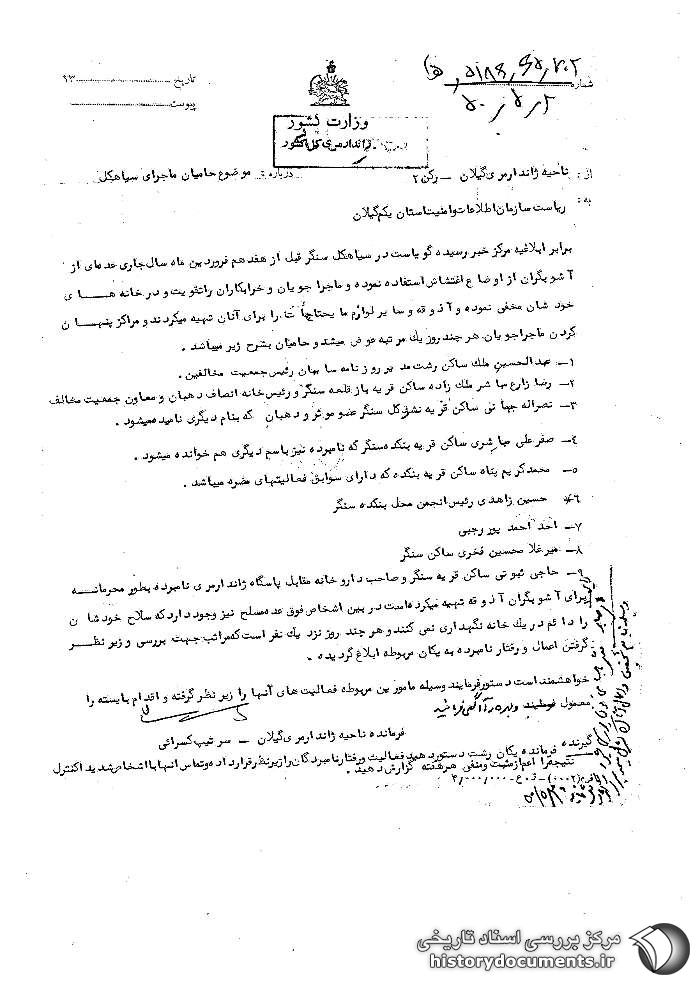 شماره ۵/۱۸۴/۶۵/۷۰۲ (ه)
۵۰/۵/۲
تاریخ ۱۳
پیوست
وزارت کشور
ژاندارمری کل کشور
از: ناحیه ژاندارمری گیلان – رکن ۲ درباره: موضوع حامیان ماجرای سیاهکل
به: ریاست سازمان اطلاعات و امنیت استان یکم گیلان
برابر ابلاغیه مرکز خبر رسیده گویاست در سیاهکل سنگر قبل از هفدهم فروردین ماه سال جاری عده‌ای از
آشوبگران از اوضاع اغتشاش استفاده نموده و ماجراجویان و خرابکاران را تقویت و در خانه هـــای
خودشان مخفی نموده و آذوقه و سایر لوازم مایحتاج را برای آنان تهیه میکردند و مراکز پنهـان
کردن ماجراجویان هر چند روز یک مرتبه عوض میشد و حامیان بشرح زیر میباشد.
۱– عبدالحسین ملک ساکن رشت مدیر روزنامه سایبان رئیس جمعیت مخالفین.
۲– رضا زارع مباشر ملک زاده ساکن قریه باز قلعه سنگر و رئیس خانه انصاف دهبان و معاون جمعیت مخالف
۳– نصراله جهانی ساکن قریه نشتکل سنگر عضو موثر و دهبان که بنام دیگری نامیده میشود.
۴– صفرعلی مباشری ساکن قریه بنکده سنگر که نامبرده نیز باسم دیگری هم خوانده میشود.
۵– محمد کریم پناه ساکن قریه بنکده که دارای سوابق فعالیتهای مضره میباشد.
۶– حسین زاهدی رئیس انجمن محل بنکده سنگر
۷– احد احمد پور رجبی
۸– میرغلامحسین فخری ساکن سنگر
۹– حاجی ثبوتی ساکن قریه سنگر و صاحب داروخانه مقابل پاسگاه ژاندارمری نامبرده بطور محرمانـه
برای آشوبگران آذوقه تهیه میکرده است در بین اشخاص فوق عده مسلح نیز وجود دارد که سلاح خودشان
را دائم در یک خانه نگهداری نمی کنند و هر چند روز نزد یک نفر است که مراتب جهت بررسی و زیر نظـر
گرفتن اعمال و رفتار نامبرده به یکان مربوطه ابلاغ گردیده.
خواهشمند است دستور فرمایند وسیله مامورین مربوطه فعالیت های آنها را زیر نظر گرفته و اقدام بایسته را
معمول فرمایند
فرمانده ناحیه ژاندارمری گیلان – سرتیپ کسرائی
گیرنده فرمانده یکان رشت دستور دهید فعالیت و رفتار نامبردگان را زیر نظر قرار داده و تماس آنها با اشخاص شدیدا کنترل
نتیجه را اعم از مثبت و منفی هر هفته گزارش دهید.
فرم (۰۰۰۲) – ت.ع – ۴/۰۰۰/۰۰۰
مرکز بررسی اسناد تاریخی
historydocuments.ir